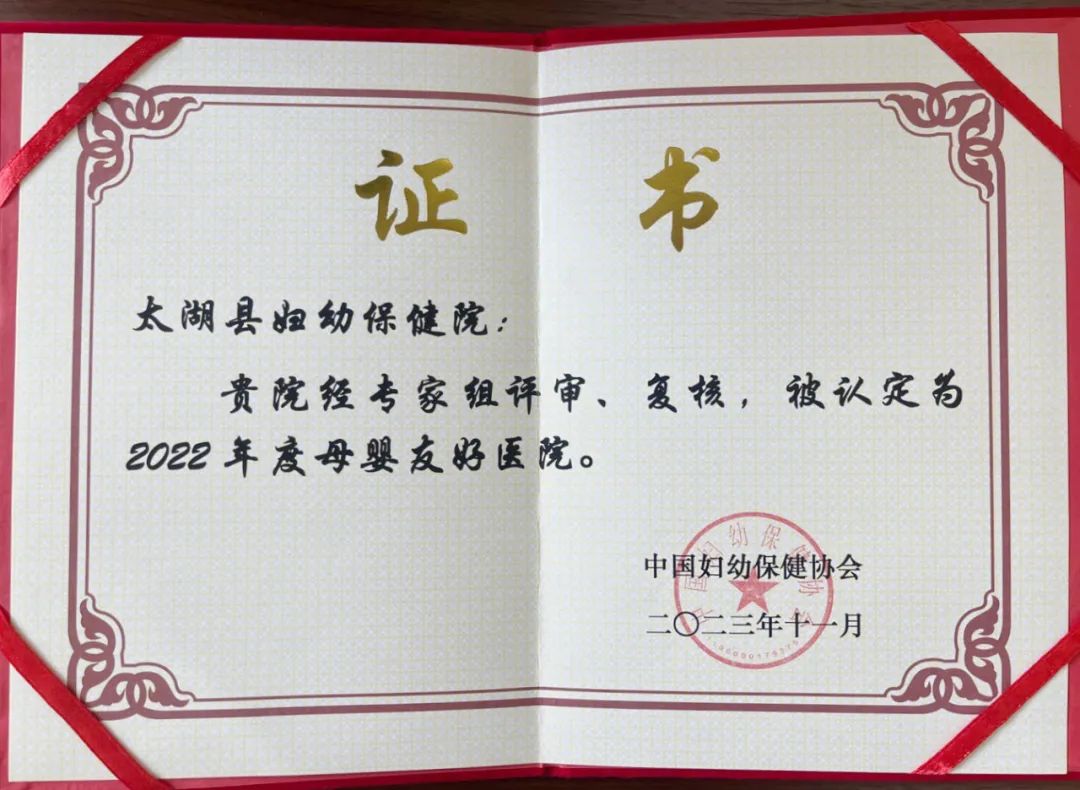 证 书
太湖县妇幼保健院：
贵院经专家组评审、复核，被认定为
2022年度母婴友好医院。
中国妇幼保健协会
二〇二三年十一月
中国妇幼保健协会